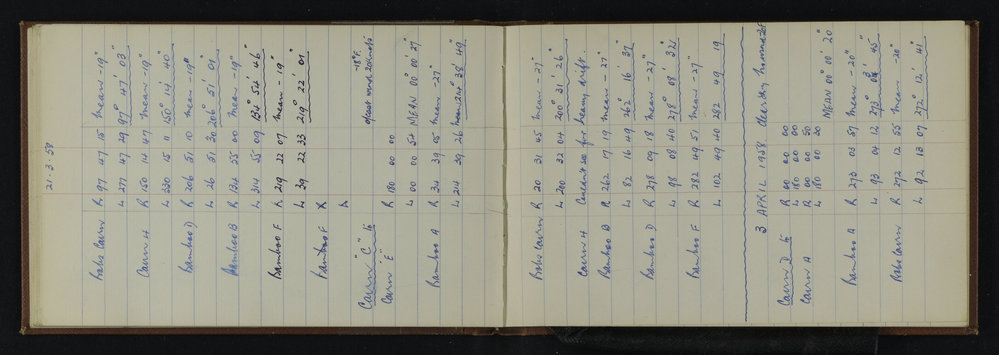 21.3.58
Babs Cairn R 97 47 15 Mean -19"
L 277 47 29 97° 47' 03"
Cairn H R 150 14 47 Mean -19"
L 330 15 11 150° 14' 40"
Bamboo D R 206 51 10 mean -19"
L 26 51 30 206° 51' 01"
Bamboo B R 134 55 00 mean -19"
L 314 55 09 134° 54' 46"
Bamboo F R 219 22 07 mean -19"
L 39 22 33 219° 22' 01"
Bamboo F R
L
Cairn "C" to -18°F.
Cairn "E" east wind 20 knots
R 180 00 00
L 00 00 54 MEAN 00° 00' 27"
Bamboo A R 34 39 05 mean -27"
L 214 39 26 mean 214° 38' 49"
Babs Cairn R 20 31 45 mean -27"
L 200 32 04 200° 31' 26"
Cairn H Couldn't see for heavy drift.
Bamboo B R 262 17 19 mean -27"
L 82 16 49 262° 16' 37"
Bamboo D R 278 09 18 mean -27"
L 98 08 40 278° 08' 32"
Bamboo F R 282 49 51 mean -27"
L 102 49 40 282 49 19
3 APRIL 1958
Cairn D to R 00 00 00
Cairn A L 180 00 00
R 00 00 50
L 180 00 20 MEAN 00° 00' 20
Bamboo A R 273 03 57 mean -20"
L 93 04 12 273° 3' 45"
Babs Cairn R 272 12 55 Mean -20"
L 92 13 07 272° 12' 41"